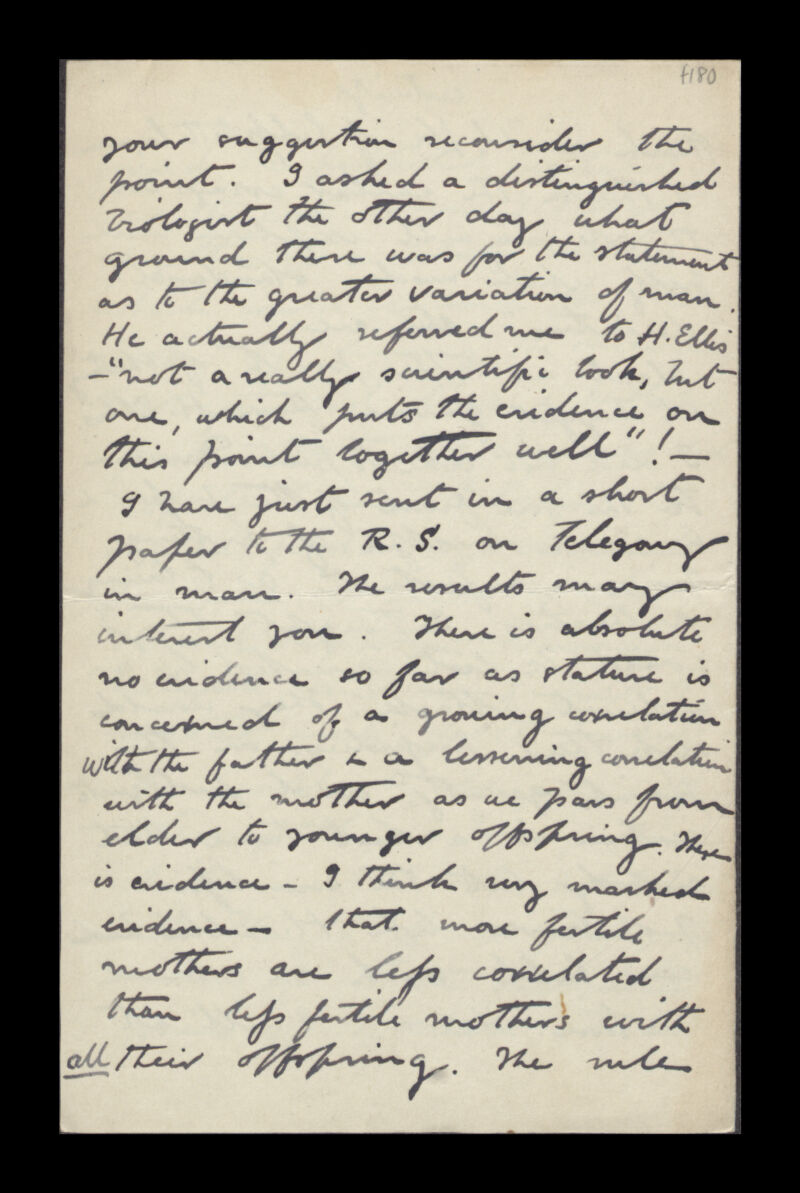 f180
your suggestion reconsider the
point. I asked a distinguished
biologist the other day what
ground there was for the statement
as to the greater variation of man.
He actually referred me to H. Ellis
– "not a really scientific book, but
one, which puts the evidence on
this point together well"! –
I have just sent in a short
paper to the R. S. on Telegony
in man. The results may
interest you. There is absolute
no evidence so far as stature is
concerned of a growing correlation
with the father & a lessening correlation
with the mother as we pass from
elder to younger offspring. There
is evidence – I think very marked
evidence – that more fertile
mothers are less correlated
than less fertile mothers with
all their offspring. The rule